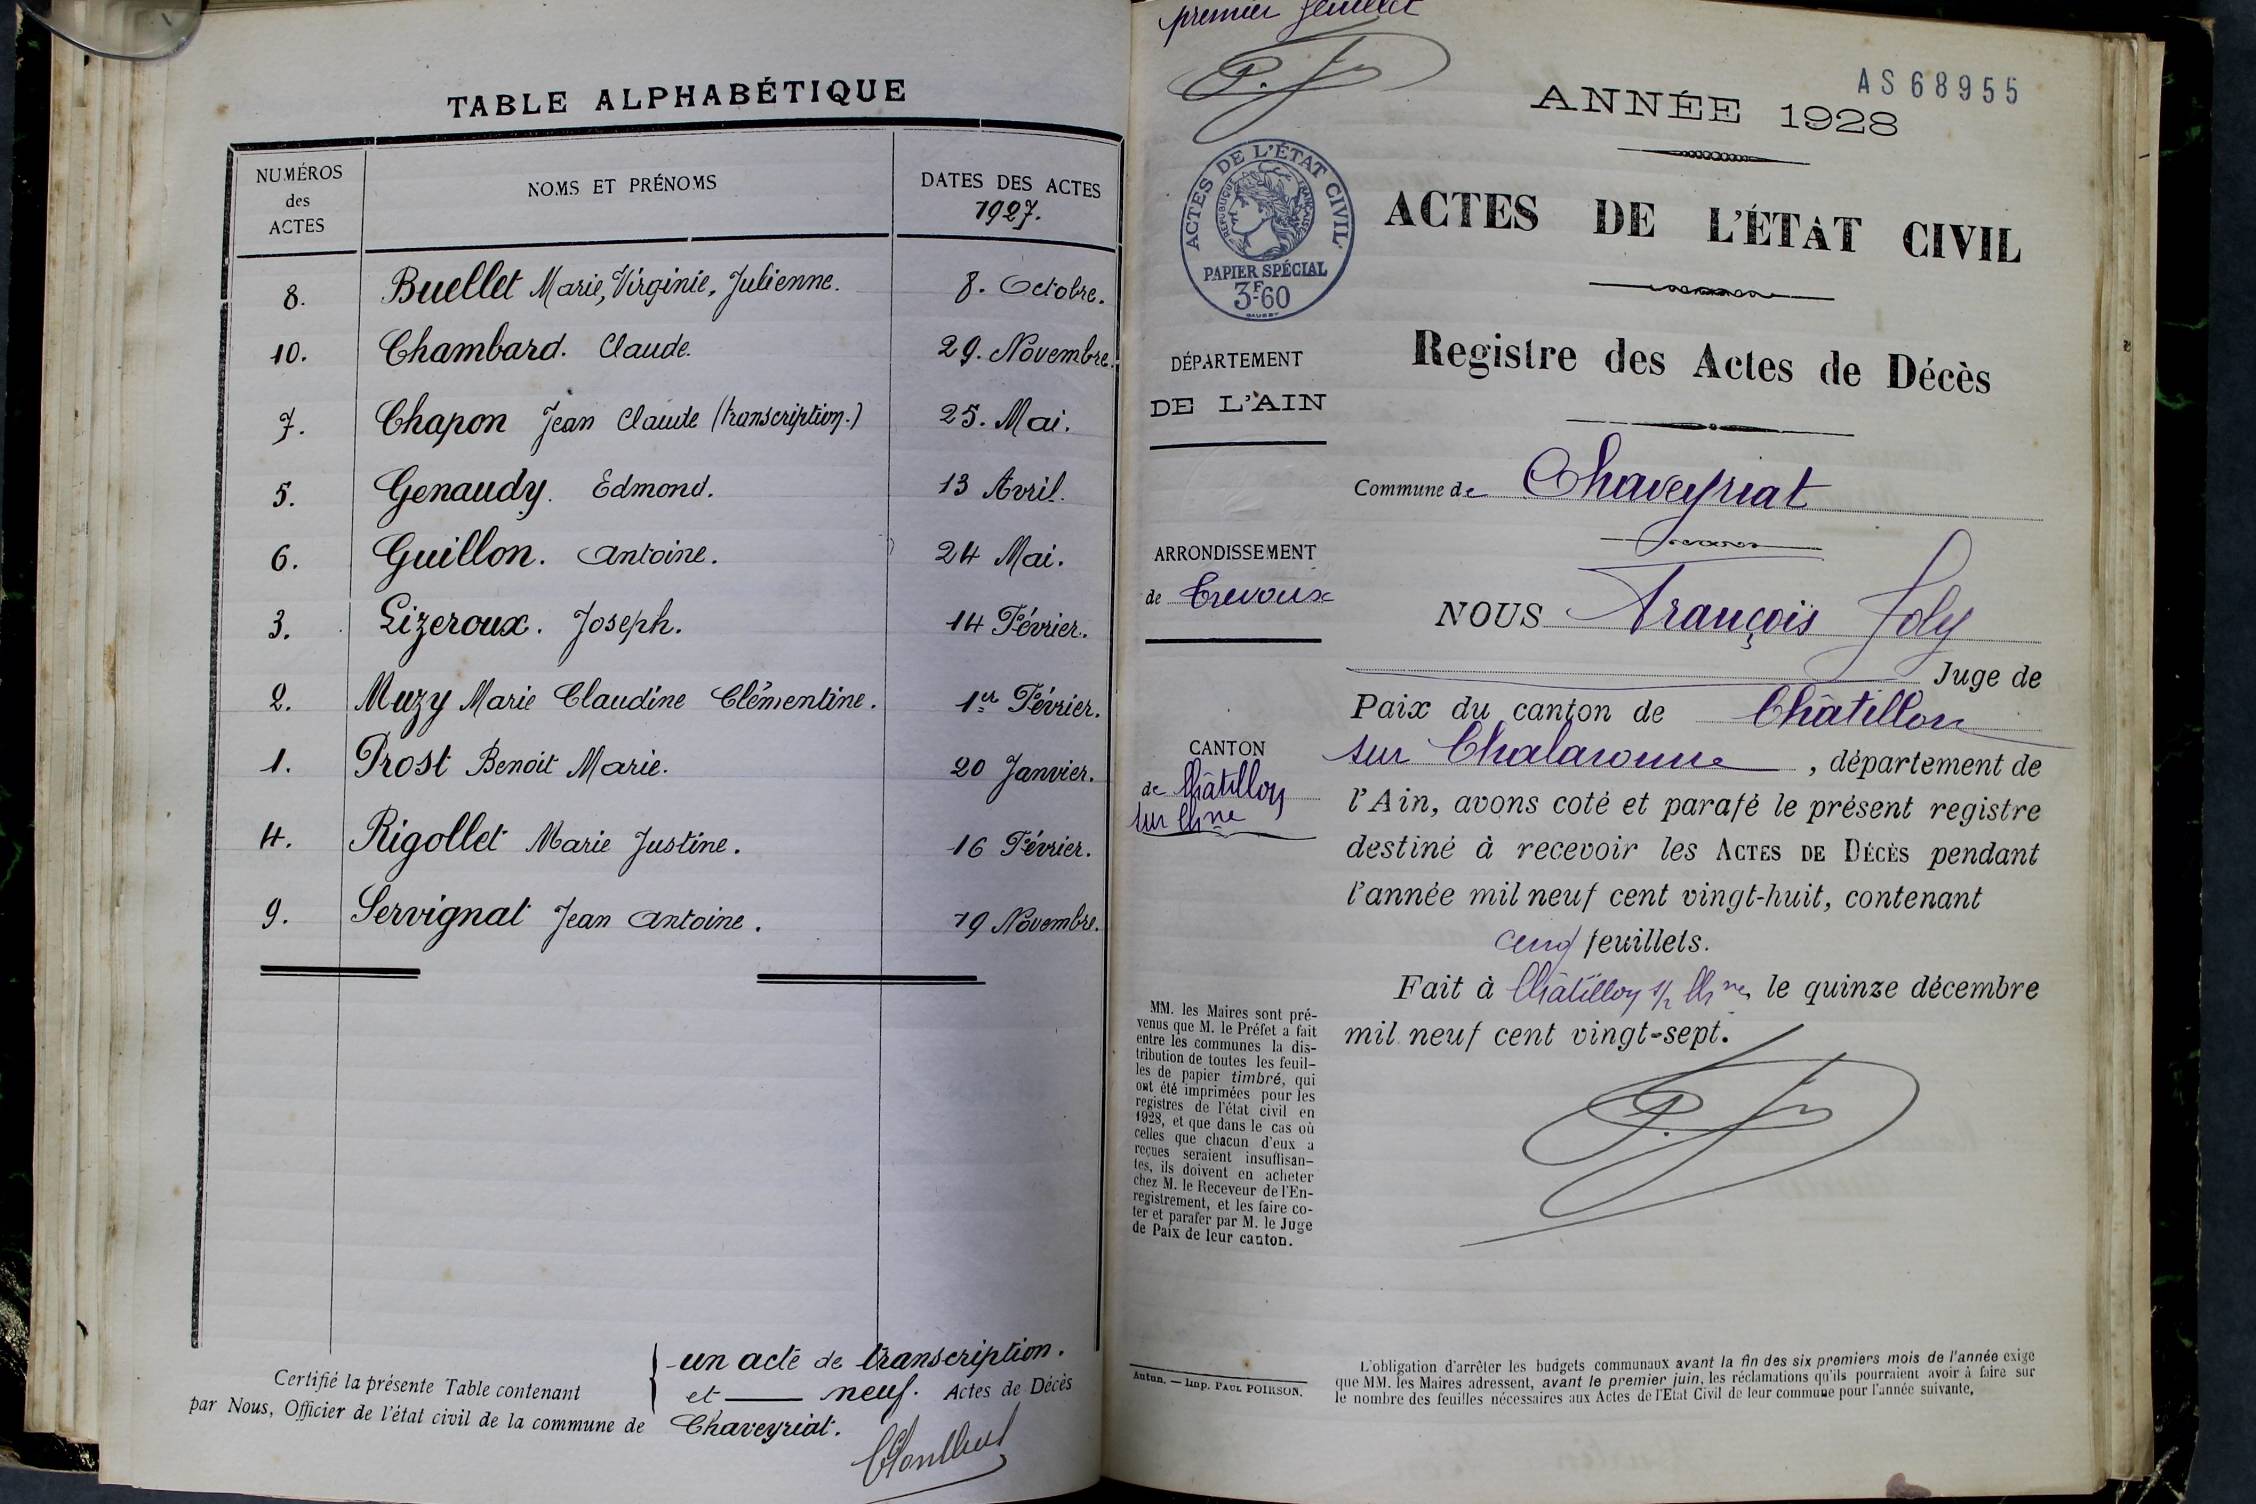 TABLE ALPHABÉTIQUE
NUMÉROS des ACTES
NOMS ET PRÉNOMS
DATES DES ACTES
1927.
8. Buellet Marie, Virginie, Julienne. 8. Octobre.
10. Chambard. Claude. 29. Novembre.
7. Chapon Jean Claude (transcription.) 25. Mai.
5. Genaudy. Edmond. 13 Avril.
6. Guillon. Antoine. 24 Mai.
3. Lizeroux. Joseph. 14 Février.
2. Muzy Marie Claudine Clémentine. 1er Février.
1. Prost Benoit Marie. 20 Janvier.
4. Rigollet Marie Justine. 16 Février.
9. Servignat Jean Antoine. 19 Novembre.
Certifié la présente Table contenant
un acte de transcription.
et neuf. Actes de Décès
par Nous, Officier de l'état civil de la commune de Chaveyriat.
premier feuillet
AS68955
ANNÉE 1928
ACTES DE L'ÉTAT CIVIL
RÉPUBLIQUE FRANÇAISE
PAPIER SPÉCIAL
3F.60
ACTES DE L'ÉTAT CIVIL
Registre des Actes de Décès
DÉPARTEMENT
DE L'AIN
Commune de Chaveyriat
ARRONDISSEMENT
de Trevoux
NOUS François Joly
Juge de
Paix du canton de Châtillon
sur Chalaronne, département de
l'Ain, avons coté et parafé le présent registre
destiné à recevoir les ACTES DE DÉCÈS pendant
l'année mil neuf cent vingt-huit, contenant
cinq feuillets.
Fait à Châtillon s/ Chne, le quinze décembre
mil neuf cent vingt-sept.
CANTON
de Châtillon
sur Chne
MM. les Maires sont pré-
venus que M. le Préfet a fait
entre les communes la dis-
tribution de toutes les feuil-
les de papier timbré, qui
ont été imprimées pour les
registres de l'état civil en
1928, et que dans le cas où
celles que chacun d'eux a
reçues seraient insuffisan-
tes, ils doivent en acheter
chez M. le Receveur de l'En-
registrement, et les faire co-
ter et parafer par M. le Juge
de Paix de leur canton.
Autun. — Imp. PAUL POIRSON.
L'obligation d'arrêter les budgets communaux avant la fin des six premiers mois de l'année exige
que MM. les Maires adressent, avant le premier juin, les réclamations qu'ils pourraient avoir à faire sur
le nombre des feuilles nécessaires aux Actes de l'Etat Civil de leur commune pour l'année suivante,